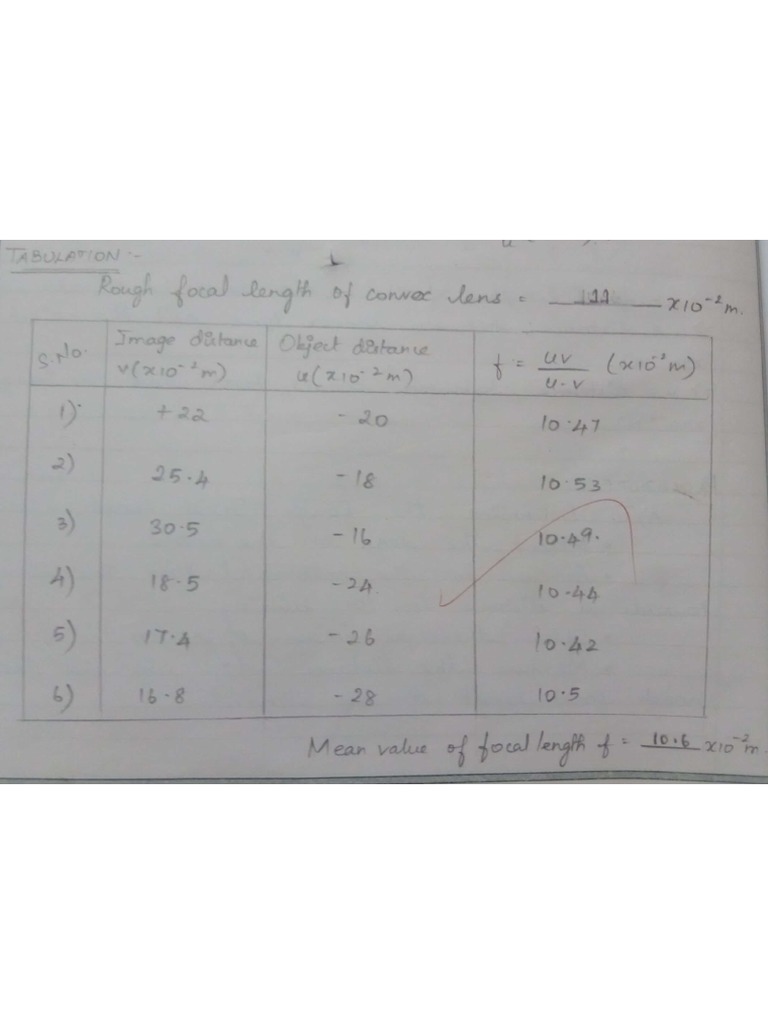 TABULATION :-
Rough focal length of convex lens = 11 x10⁻² m.
S.No. Image distance v(x10⁻² m) Object distance u(x10⁻² m) f = uv/u-v (x10⁻² m)
1) + 22 - 20 10.47
2) 25.4 - 18 10.53
3) 30.5 - 16 10.49.
4) 18.5 - 24. 10.44
5) 17.4 - 26 10.42
6) 16.8 - 28 10.5
Mean value of focal length f = 10.6 x10⁻² m.